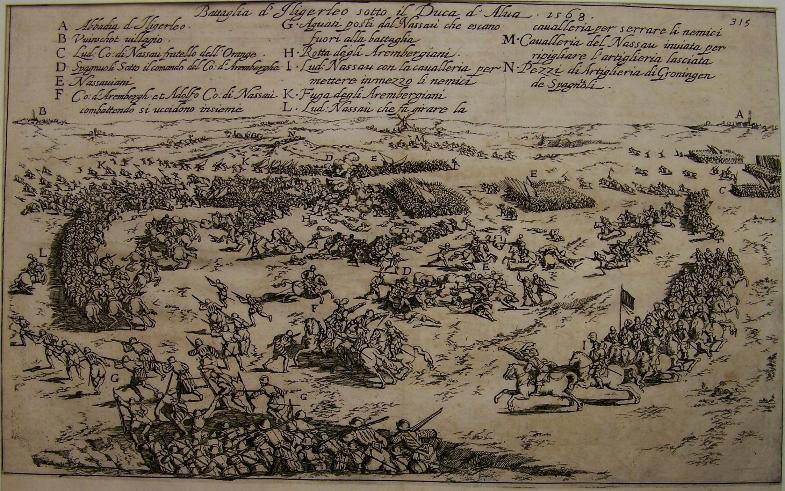 Battaglia d'Iligerleo sotto il Duca d'Alua . 1568.
315
A Abbadia d'Iligerleo
B villagio
C Lud. Co: di Nassau fratello dell'Orange
D Spagnuoli Sotto il comando del Co: d'Aremberghe
E Nassauiani
F Co: d'Arembergh et Adolfo Co: di Nassau
combattendo si uccidono insieme
G Aguati posti dal Nassau che escano
fuori alla battaglia
H Rotta degli Arembergiani
I Lud. Nassau con la caualleria per
mettere in mezzo li nemici
K Fuga degli Arembergiani
L Lud. Nassau che fà girare la
caualleria per serrare li nemici
M Caualleria del Nassau inuiata per
ripigliare l'artiglieria lasciata
N Pezzi di Artiglieria di Groningen
de Spagnoli
B
A
K
K
D
E
E
C
H
L
M
D
E
F
I
G
G
N